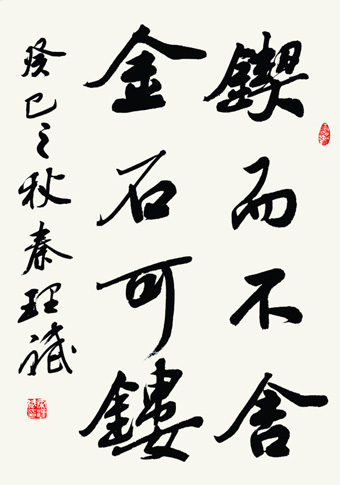 鍥而不舍
金石可鏤
癸巳之秋秦理斌